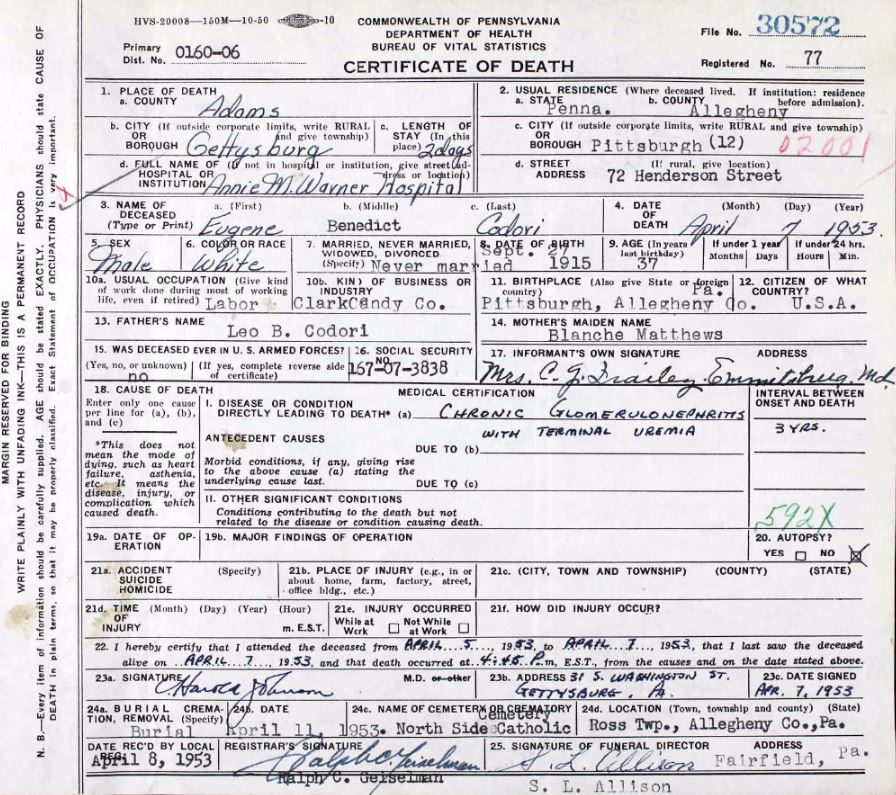 HVS-20008—150M—10-50 -10
COMMONWEALTH OF PENNSYLVANIA
DEPARTMENT OF HEALTH
BUREAU OF VITAL STATISTICS
CERTIFICATE OF DEATH
File No. 30572
Primary Dist. No. 0160-06
Registered No. 77
1. PLACE OF DEATH
a. COUNTY Adams
2. USUAL RESIDENCE (Where deceased lived. If institution: residence before admission).
a. STATE Penna. b. COUNTY Allegheny
b. CITY (If outside corporate limits, write RURAL and give township) OR BOROUGH Gettysburg
c. LENGTH OF STAY (In this place) 2 days
c. CITY (If outside corporate limits, write RURAL and give township) OR BOROUGH Pittsburgh (12)
02001
d. FULL NAME OF (If not in hospital or institution, give street address or location) HOSPITAL OR INSTITUTION Annie M. Warner Hospital
d. STREET ADDRESS (If rural, give location) 72 Henderson Street
3. NAME OF DECEASED (Type or Print)
a. (First) Eugene
b. (Middle) Benedict
c. (Last) Codori
4. DATE OF DEATH (Month) (Day) (Year) April 7 1953
5. SEX Male
6. COLOR OR RACE White
7. MARRIED, NEVER MARRIED, WIDOWED, DIVORCED (Specify) Never married
8. DATE OF BIRTH Sept. 27 1915
9. AGE (In years last birthday) 37
If under 1 year Months Days
If under 24 hrs. Hours Min.
10a. USUAL OCCUPATION (Give kind of work done during most of working life, even if retired) Labor
10b. KIND OF BUSINESS OR INDUSTRY ClarkCandy Co.
11. BIRTHPLACE (Also give State or foreign country) Pittsburgh, Allegheny Co. Pa.
12. CITIZEN OF WHAT COUNTRY? U.S.A.
13. FATHER'S NAME Leo B. Codori
14. MOTHER'S MAIDEN NAME Blanche Matthews
15. WAS DECEASED EVER IN U. S. ARMED FORCES?
(Yes, no, or unknown) no
(If yes, complete reverse side of certificate)
16. SOCIAL SECURITY NO 167-07-3838
17. INFORMANT'S OWN SIGNATURE ADDRESS
Mrs. C. J. Emmitsburg, Md
18. CAUSE OF DEATH
Enter only one cause per line for (a), (b), and (c)
MEDICAL CERTIFICATION
INTERVAL BETWEEN ONSET AND DEATH
I. DISEASE OR CONDITION DIRECTLY LEADING TO DEATH* (a) CHRONIC GLOMERULONEPHRITIS
WITH TERMINAL UREMIA
3 YRS.
*This does not mean the mode of dying, such as heart failure, asthenia, etc. It means the disease, injury, or complication which caused death.
ANTECEDENT CAUSES
DUE TO (b)
Morbid conditions, if any, giving rise to the above cause (a) stating the underlying cause last.
DUE TO (c)
II. OTHER SIGNIFICANT CONDITIONS
Conditions contributing to the death but not related to the disease or condition causing death.
592X
19a. DATE OF OPERATION
19b. MAJOR FINDINGS OF OPERATION
20. AUTOPSY?
YES NO
21a. ACCIDENT SUICIDE HOMICIDE (Specify)
21b. PLACE OF INJURY (e.g., in or about home, farm, factory, street, office bldg., etc.)
21c. (CITY, TOWN AND TOWNSHIP) (COUNTY) (STATE)
21d. TIME OF INJURY (Month) (Day) (Year) (Hour) m. E.S.T.
21e. INJURY OCCURRED
While at Work Not While at Work
21f. HOW DID INJURY OCCUR?
22. I hereby certify that I attended the deceased from APRIL 5, 1953, to APRIL 7, 1953, that I last saw the deceased
alive on APRIL 7, 1953, and that death occurred at 4:45 P.m, E.S.T., from the causes and on the date stated above.
23a. SIGNATURE Harold Johnson M.D. or other
23b. ADDRESS 31 S. WASHINGTON ST. GETTYSBURG, PA.
23c. DATE SIGNED APR. 7, 1953
24a. BURIAL CREMATION, REMOVAL (Specify) Burial
24b. DATE April 11, 1953.
24c. NAME OF CEMETERY OR CREMATORY North Side Catholic Cemetery
24d. LOCATION (Town, township and county) (State) Ross Twp., Allegheny Co.,Pa.
DATE REC'D BY LOCAL REG. April 8, 1953
REGISTRAR'S SIGNATURE Ralph C. Geiselman
Ralph C. Geiselman
25. SIGNATURE OF FUNERAL DIRECTOR ADDRESS
S. L. Allison Fairfield, Pa.
S. L. Allison
MARGIN RESERVED FOR BINDING
WRITE PLAINLY WITH UNFADING INK—THIS IS A PERMANENT RECORD
N. B.—Every item of information should be carefully supplied. AGE should be stated EXACTLY. PHYSICIANS should state CAUSE OF
DEATH in plain terms, so that it may be properly classified. Exact Statement of OCCUPATION is very important.